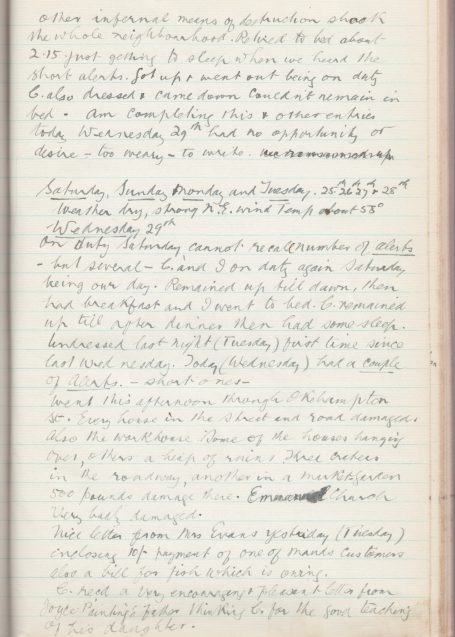 other infernal means of destruction shook
the whole neighbourhood. Retired to bed about
2.15. just getting to sleep when we heard the
short alerts. Got up & went out being on duty
C. also dressed & came down couldn't remain in
bed - am completing this & other entries
today Wednesday 29th had no opportunity or
desire - too weary - to write.
Saturday, Sunday Monday and Tuesday. 25th 26th 27th & 28th
Weather dry, strong N.E. wind Temp about 58°
Wednesday 29th
On duty Saturday cannot recall number of alerts
- but several - C. and I on duty again Saturday
being our day. Remained up till dawn, then
had breakfast and I went to bed. C. remained
up till after dinner then had some sleep.
Undressed last night (Tuesday) first time since
last Wednesday. Today (Wednesday) had a couple
of alerts. - short ones -
Went this afternoon through
St. Every house in the street and road damaged.
Also the workhouse Some of the houses hanging
over, others a heip of ruins Three craters
in the roadway, another in a market garden
500 pounds damage there. Emmanuel Church
Very badly damaged.
Nice letter from Mrs Evans yesterday (Tuesday)
enclosing 10/- payment of one of customers
also a bill for fish which is owing.
C. recd a very encouraging & pleasant letter from
Joyce father thinking C. for the good teaching
of his daughter.